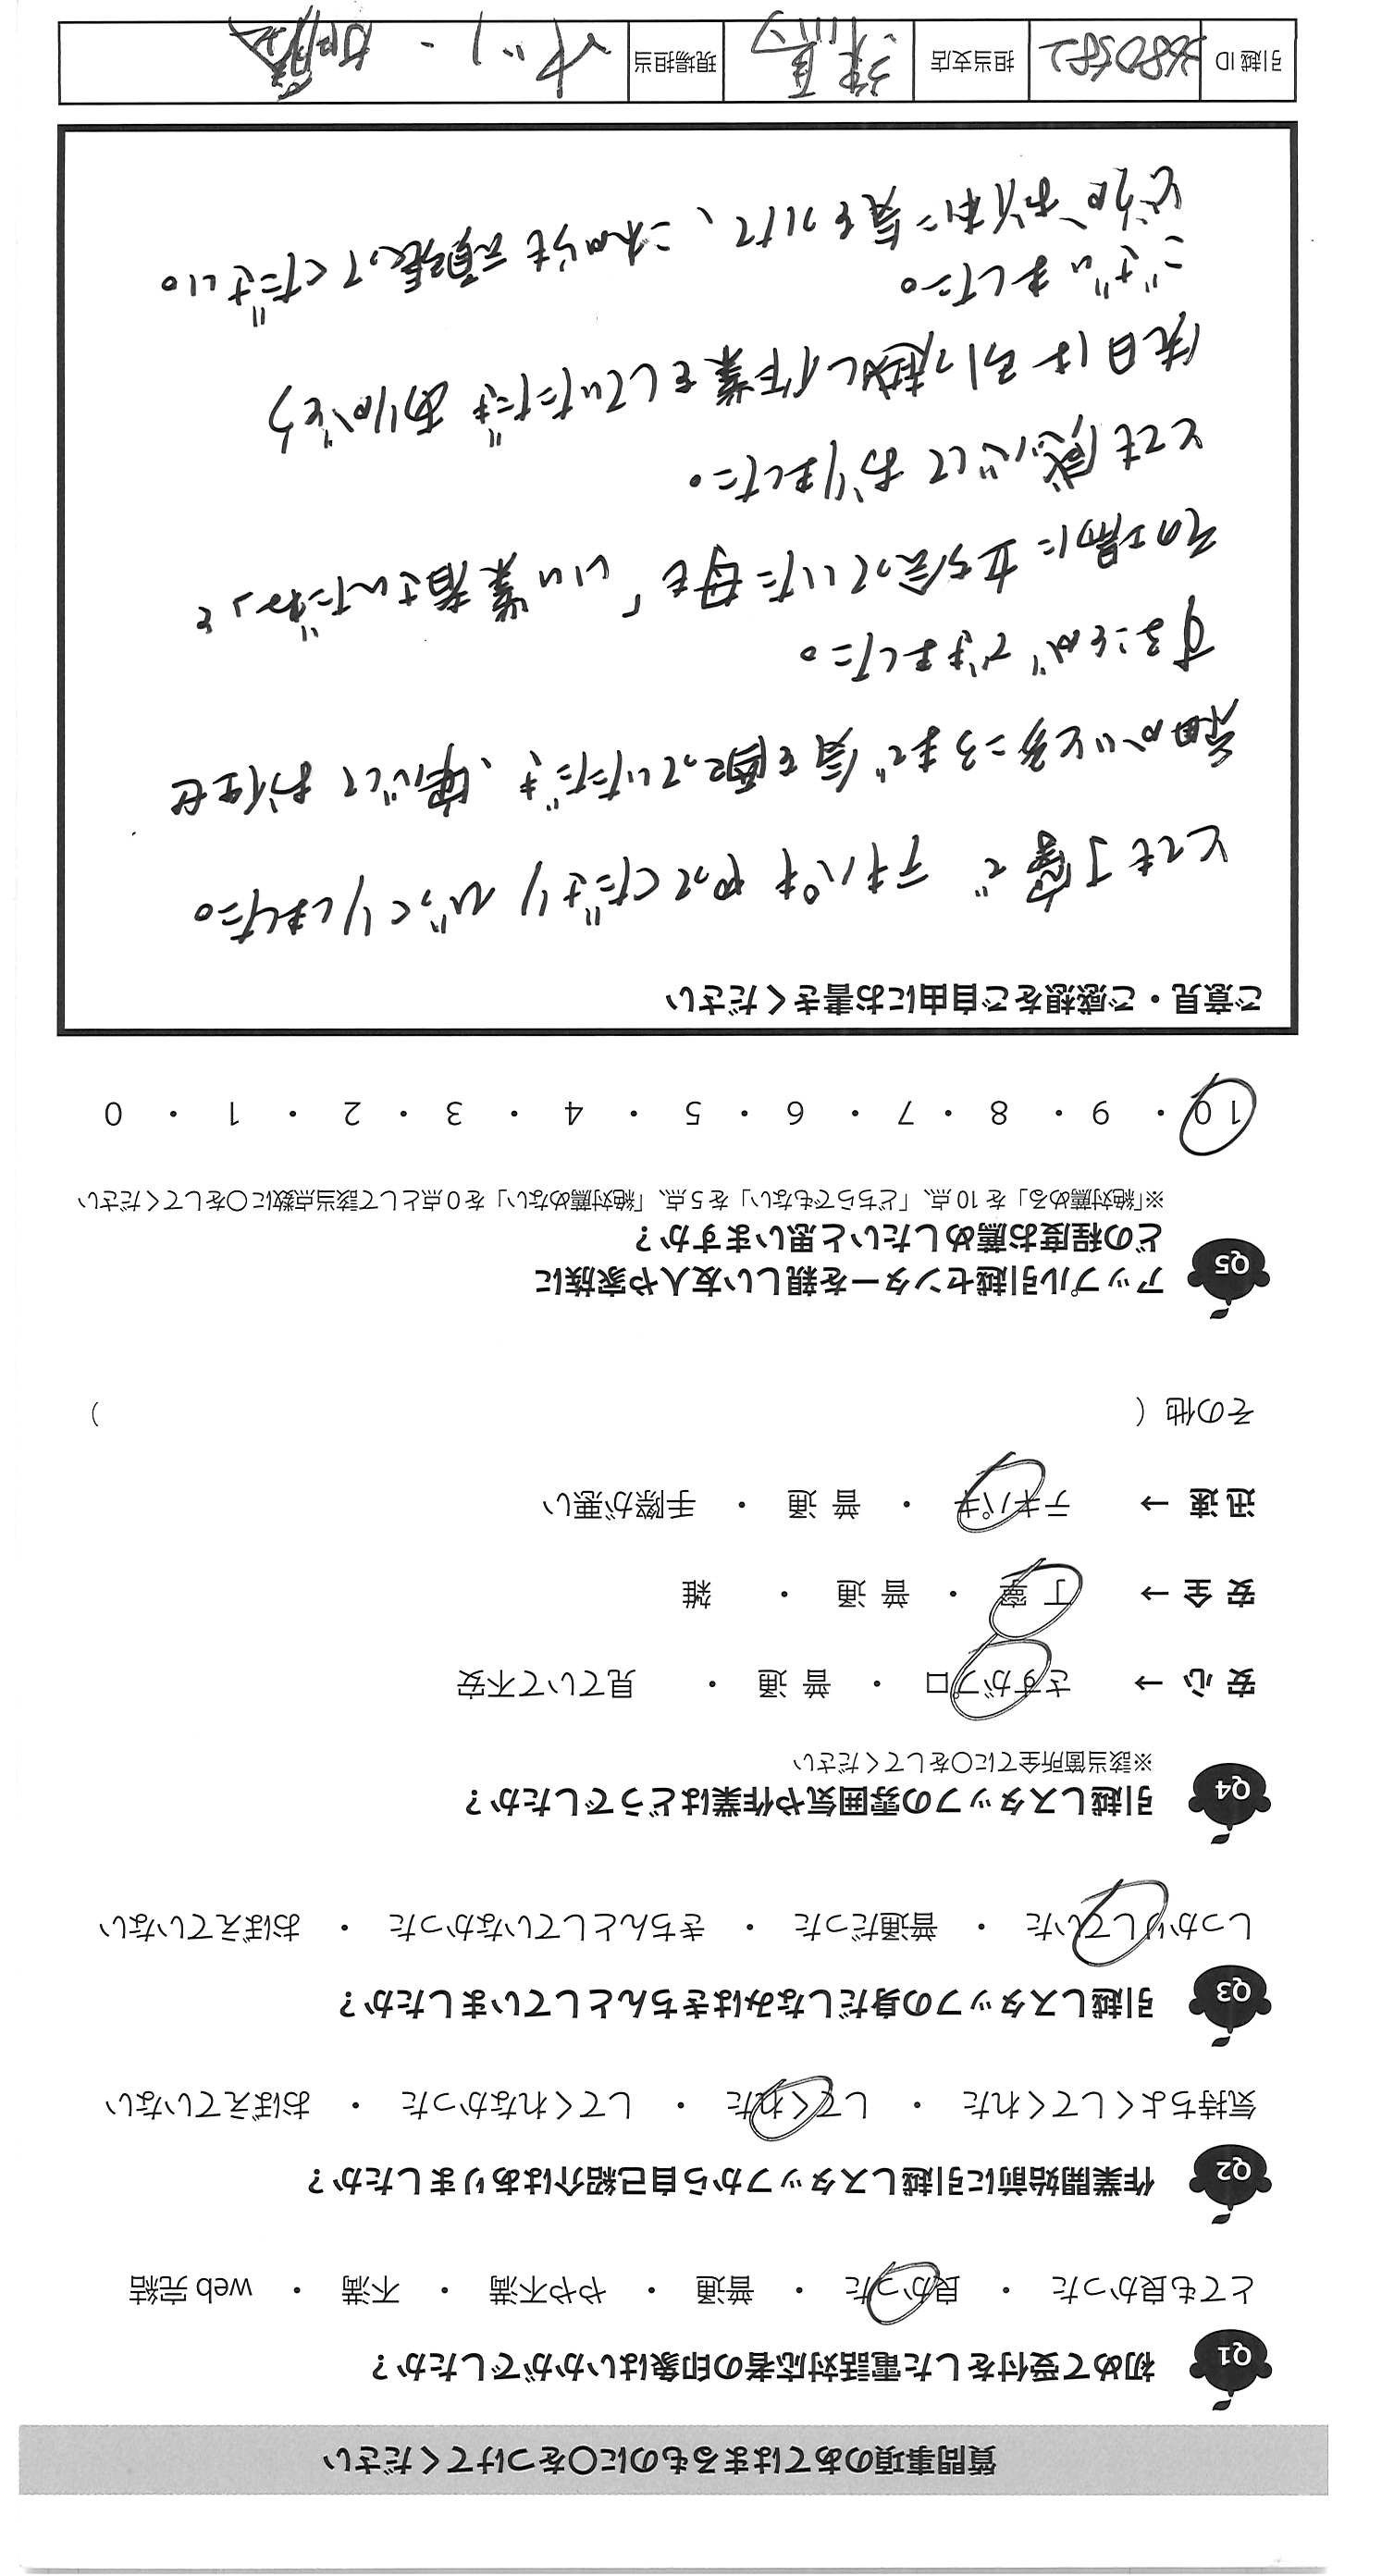 質問事項のあてはまるものに○をつけてください
Q1 初めて受付をした電話対応者の印象はいかがでしたか？
とても良かった ・ 良かった ・ 普通 ・ やや不満 ・ 不満 ・ web 完結
Q2 作業開始前に引越しスタッフから自己紹介はありましたか？
気持ちよくしてくれた ・ してくれた ・ してくれなかった ・ おぼえていない
Q3 引越しスタッフの身だしなみはきちんとしていましたか？
しっかりしていた ・ 普通だった ・ きちんとしていなかった ・ おぼえていない
Q4 引越しスタッフの雰囲気や作業はどうでしたか？
※該当箇所全てに○をしてください
安 心 → さすがプロ ・ 普 通 ・ 見ていて不安
安 全 → 丁 寧 ・ 普 通 ・ 雑
迅 速 → テキパキ ・ 普 通 ・ 手際が悪い
その他（ ）
Q5 アップル引越センターを親しい友人や家族に
どの程度お薦めしたいと思いますか？
※「絶対薦める」を 10 点、「どちらでもない」を 5 点、「絶対薦めない」を 0 点として該当点数に○をしてください
10 ・ 9 ・ 8 ・ 7 ・ 6 ・ 5 ・ 4 ・ 3 ・ 2 ・ 1 ・ 0
ご意見・ご感想をご自由にお書きください
とても丁寧で テキパキ やってくださり びっくりしました。
細かいところまで気を配っていただき、安心してお任せ
することができました。
その場に立ち会っていた母も「いい業者さんだね」と
とても感心しておりました。
先日は引っ越し作業をしていただき ありがとう
ございました。
どうかお体に気をつけて、これからも頑張ってください。
引越 ID 3680582 担当支店 練馬 現場担当